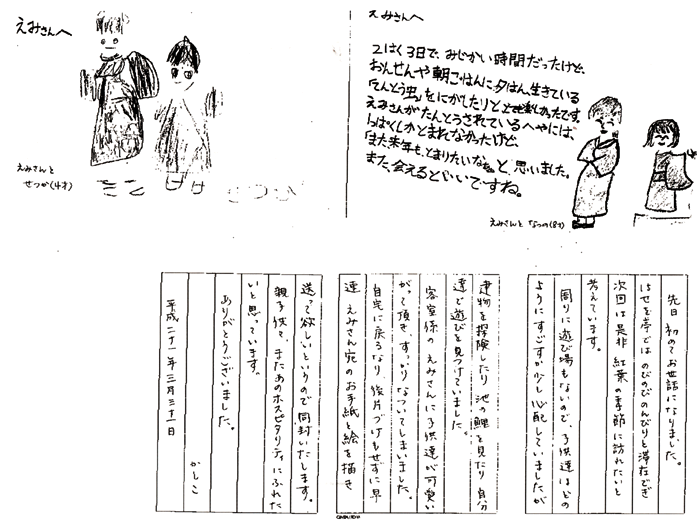 えみさんへ
えみさんと
せつか(4才)
えみさんへ
2はく3日で、みじかい時間だったけど、
おんせんや朝ごはんに夕はん、生きている
「てんとう虫」をにがしたりととても楽しかったです。
えみさんがたんとうされているへやには、
1ぱくしかとまれなかったけど、
「また来年も、とまりたいなぁ。」と、思いました。
また、会えるといいですね。
えみさんと なつの(8才)
先日 初めてお世話になりました。
はせを亭ではのびのびのんびりと滞在でき
次回は是非 紅葉の季節に訪れたいと
考えています。
周りに遊び場もないので、子供達はどの
ようにすごすか少し心配していましたが
建物を探険したり 池の鯉を見たり 自分
達で遊びを見つけていました。
客室係の えみさんに子供達が可愛い
がって頂き、すっかりなついてしまいました。
自宅に戻るなり 後片づけもせずに早
速 えみさん宛のお手紙と絵を描き
送って欲しいというので 同封いたします。
親子供で、またあのホスピタリティにふれた
いと思っています。
ありがとうございました。
かしこ
平成二十一年三月三十一日